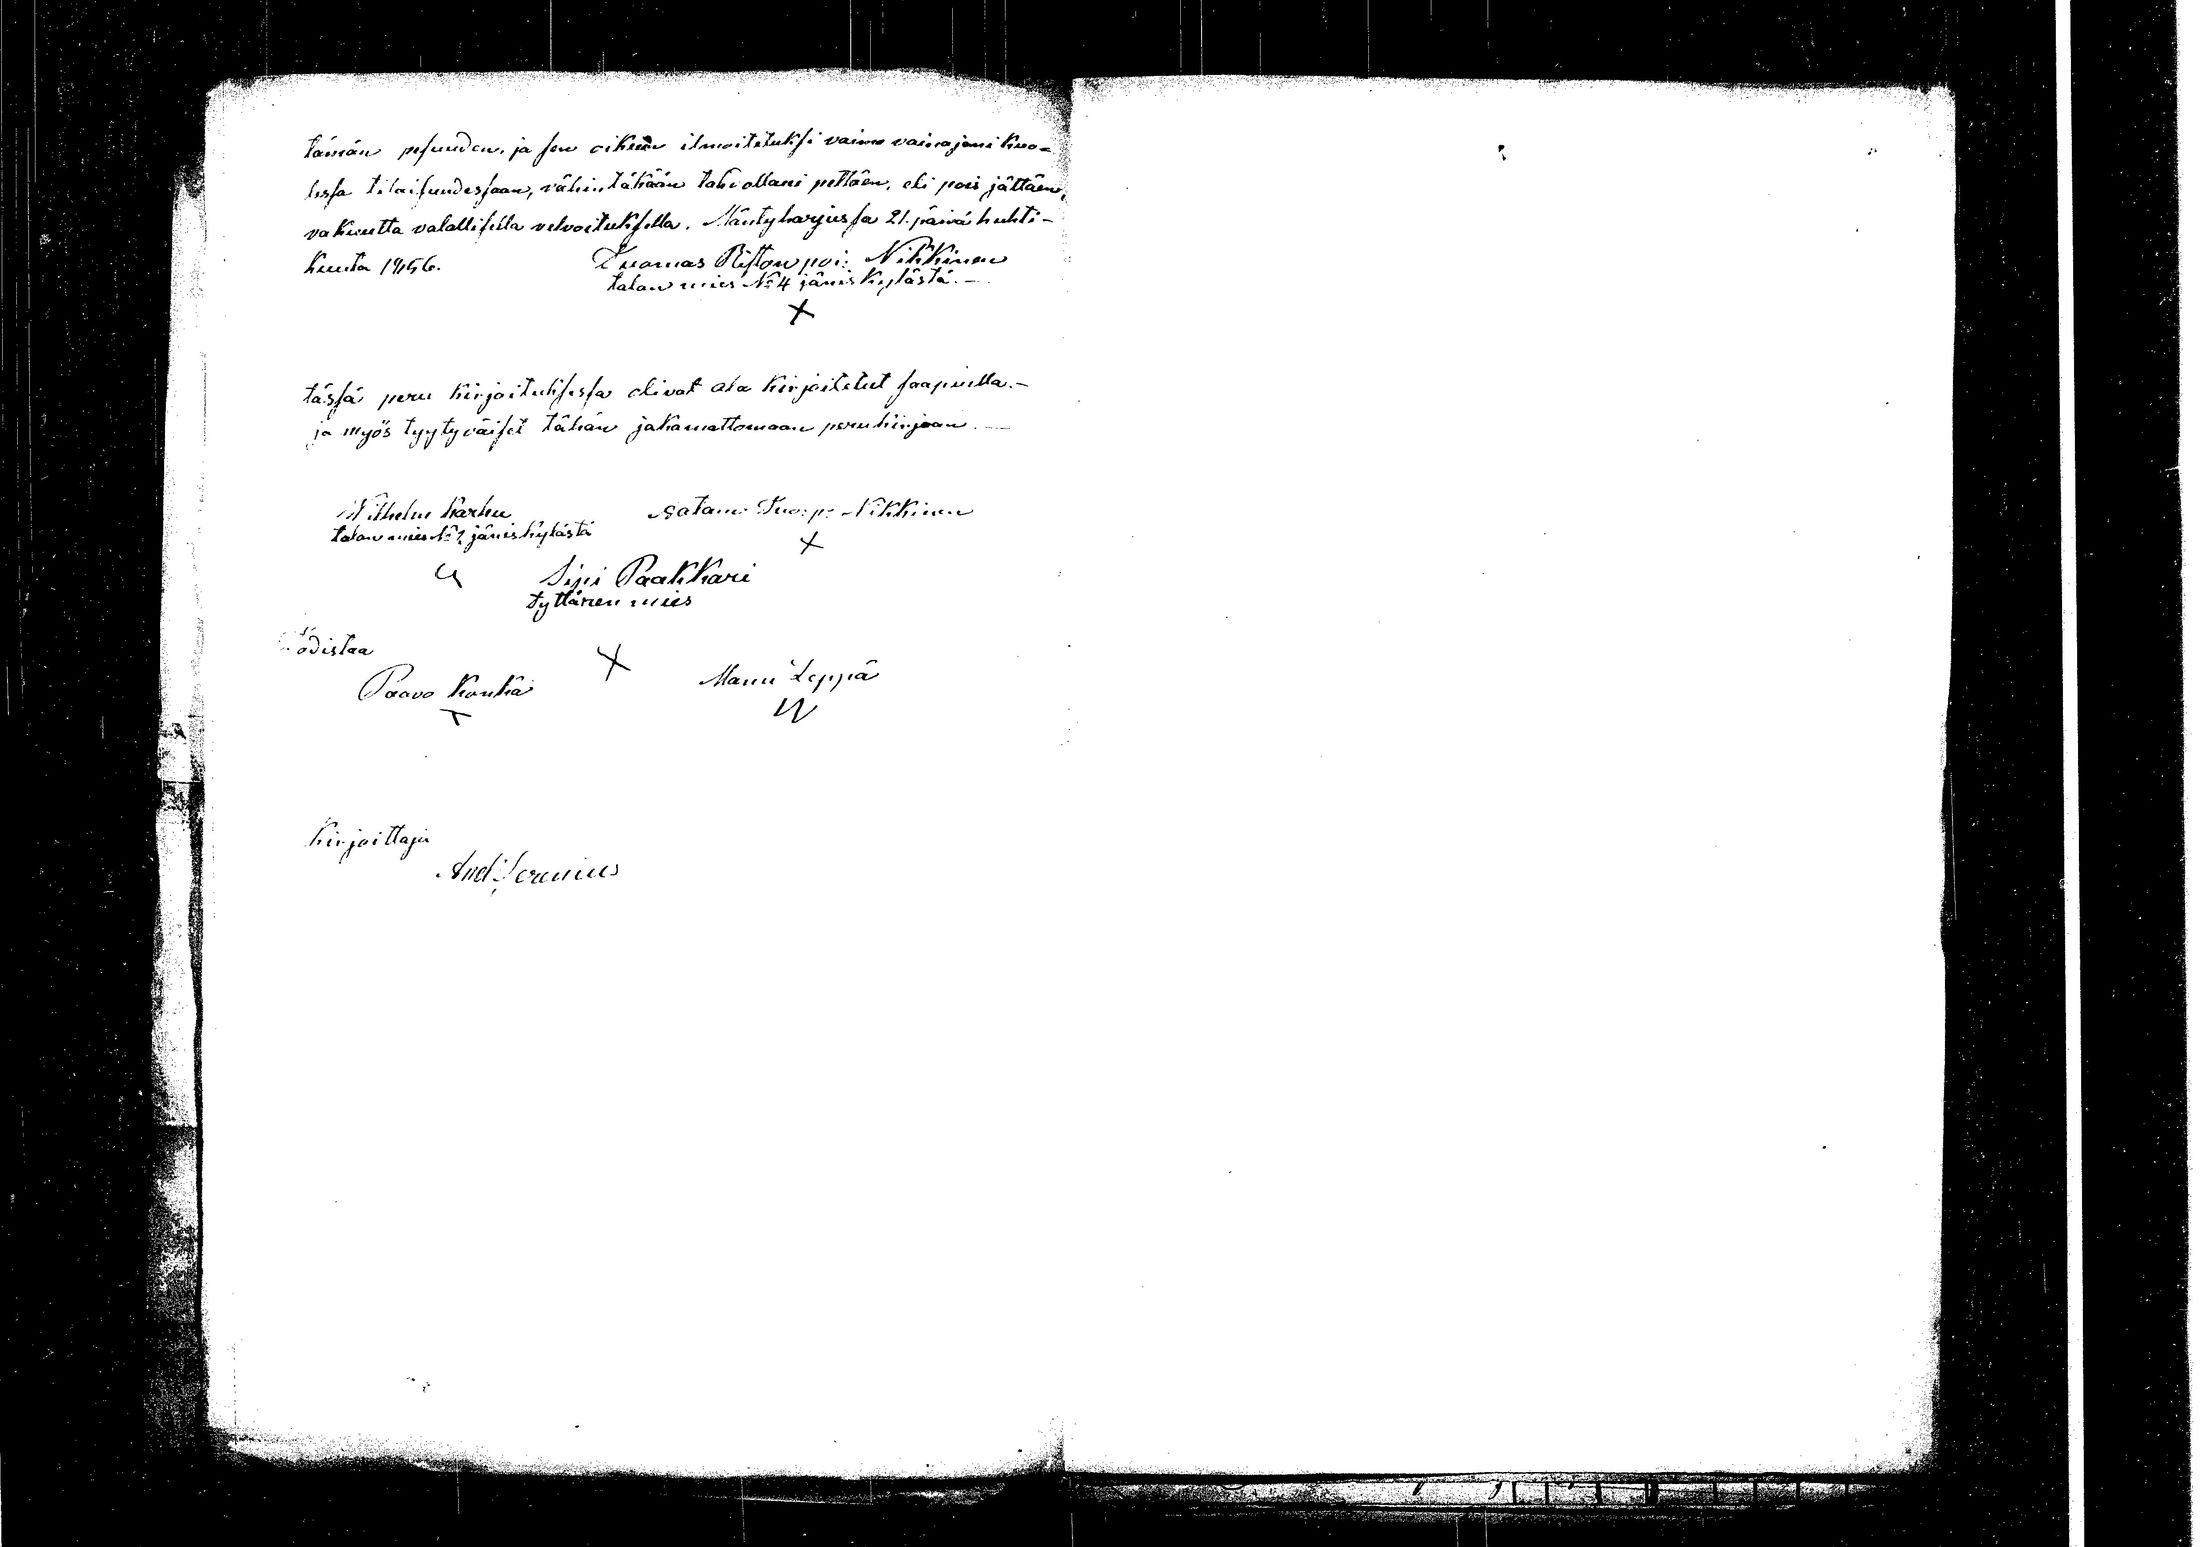 tämän pesuuden, ja sen oikein ilmoitetuksi vaimo vainajani kuo-
lessa tilaisuudessaan, vähintäkään tahiollani pettäen, eli pois jättäen,
vakuutta valallisella velvoituksella. Mäntyharjussa 21. päivä huhti-
kuuta 1856.
Tuomas Riston poi: Nikkinen
talon mies No 4 jänis kylästä. -
X
tässä peru kirjoituksessa olivat ala kirjoitetut saapuilla. -
ja myös tyytyväiset tähän jakamattomaan perukirjaan. -
Wilhelm Karhu
talon mies No 2 jänis kylästä
Aatami Tuo: p: Nikkinen
X
Sipi Paakkari
tyttären mies
X
todistaa
Paavo Koukä
Manu Leppä
kirjoittaja
And: Serenius